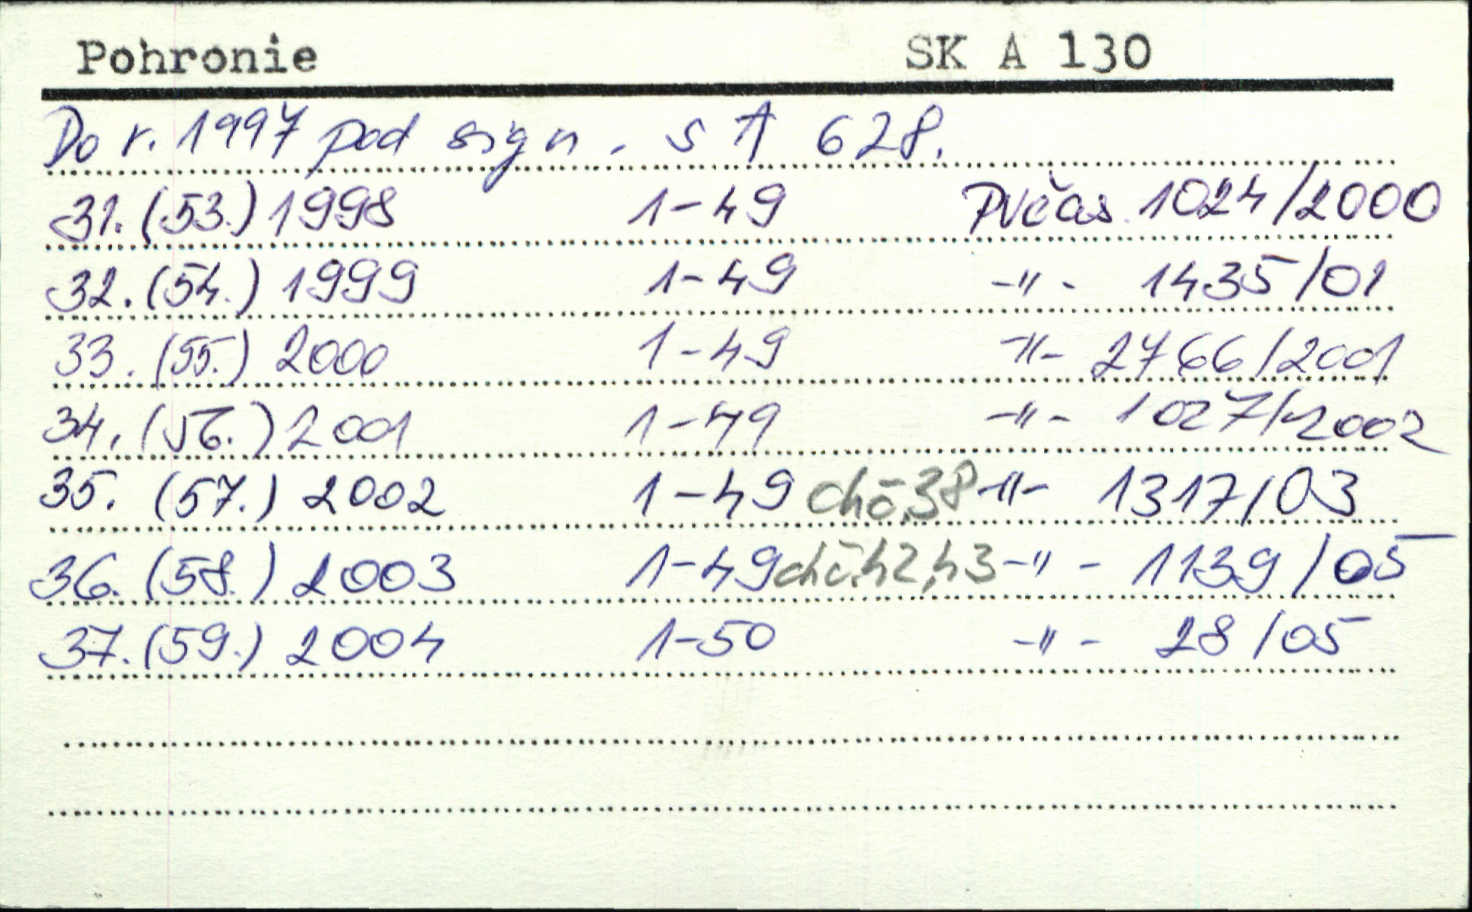 Pohronie SK A 130
Do r. 1997 pod sign. S A 628.
31. (53.) 1998 1-49 PVčas 1024/2000
32. (54.) 1999 1-49 -"- 1435/01
33. (55.) 2000 1-49 -"- 2766/2001
34. (56.) 2001 1-49 -"- 1027/2002
35. (57.) 2002 1-49 chč.38 -"- 1317/03
36. (58.) 2003 1-49 chč.42,43 -"- 1139/05
37. (59.) 2004 1-50 -"- 28/05